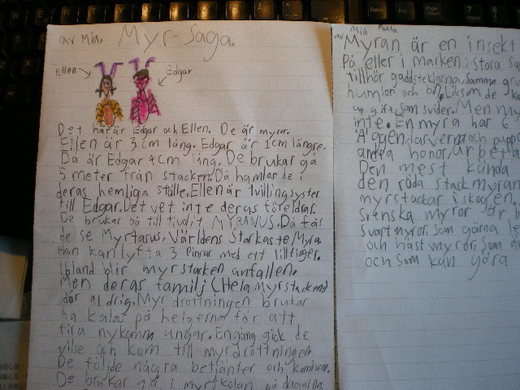 av Mia. Myr-Saga.
Ellen Edgar
Det här är Edgar och Ellen. De är myror.
Ellen är 3 cm lång. Edgar är 1cm längre.
Då är Edgar 4cm lång. De brukar gå
5 meter från stacken. Då hamlar de i
deras hemliga ställe. Ellen är tvillingsyster
till Edgar. Det vet inte deras föreldrar.
De brukar gå till tivolit MYRANUS. Då får
de se Myrtasus, Världens Starkaste Myra
Han kan lyfta 3 Pinnar med ett lillfinger.
Ibland blir myrstacken anfallen.
Men deras familj (Hela myrstacken)
dör aldrig. Myrdrottningen brukar
ha kalas på helgerna för att
fira nykomna ungar. En gång gick de
vilse och kom till myrdrottningen
De följde några betjänter och
De brukar gå i myrskolan på dagarna
Mia
Myran är en insekt
På eller i marken i stora
tillhör gaddsteklarna. samma
humlor och bin. Liksom de
som svider. Men
inte. En myra har 6
Äggen, larverna och
andra honor, arbeta
Den mest kända
den röda stackmyran
myrstackar i skogen.
Svenska myror är
svartmyror. som gärna
och hästmyror, som är
och som kan göra